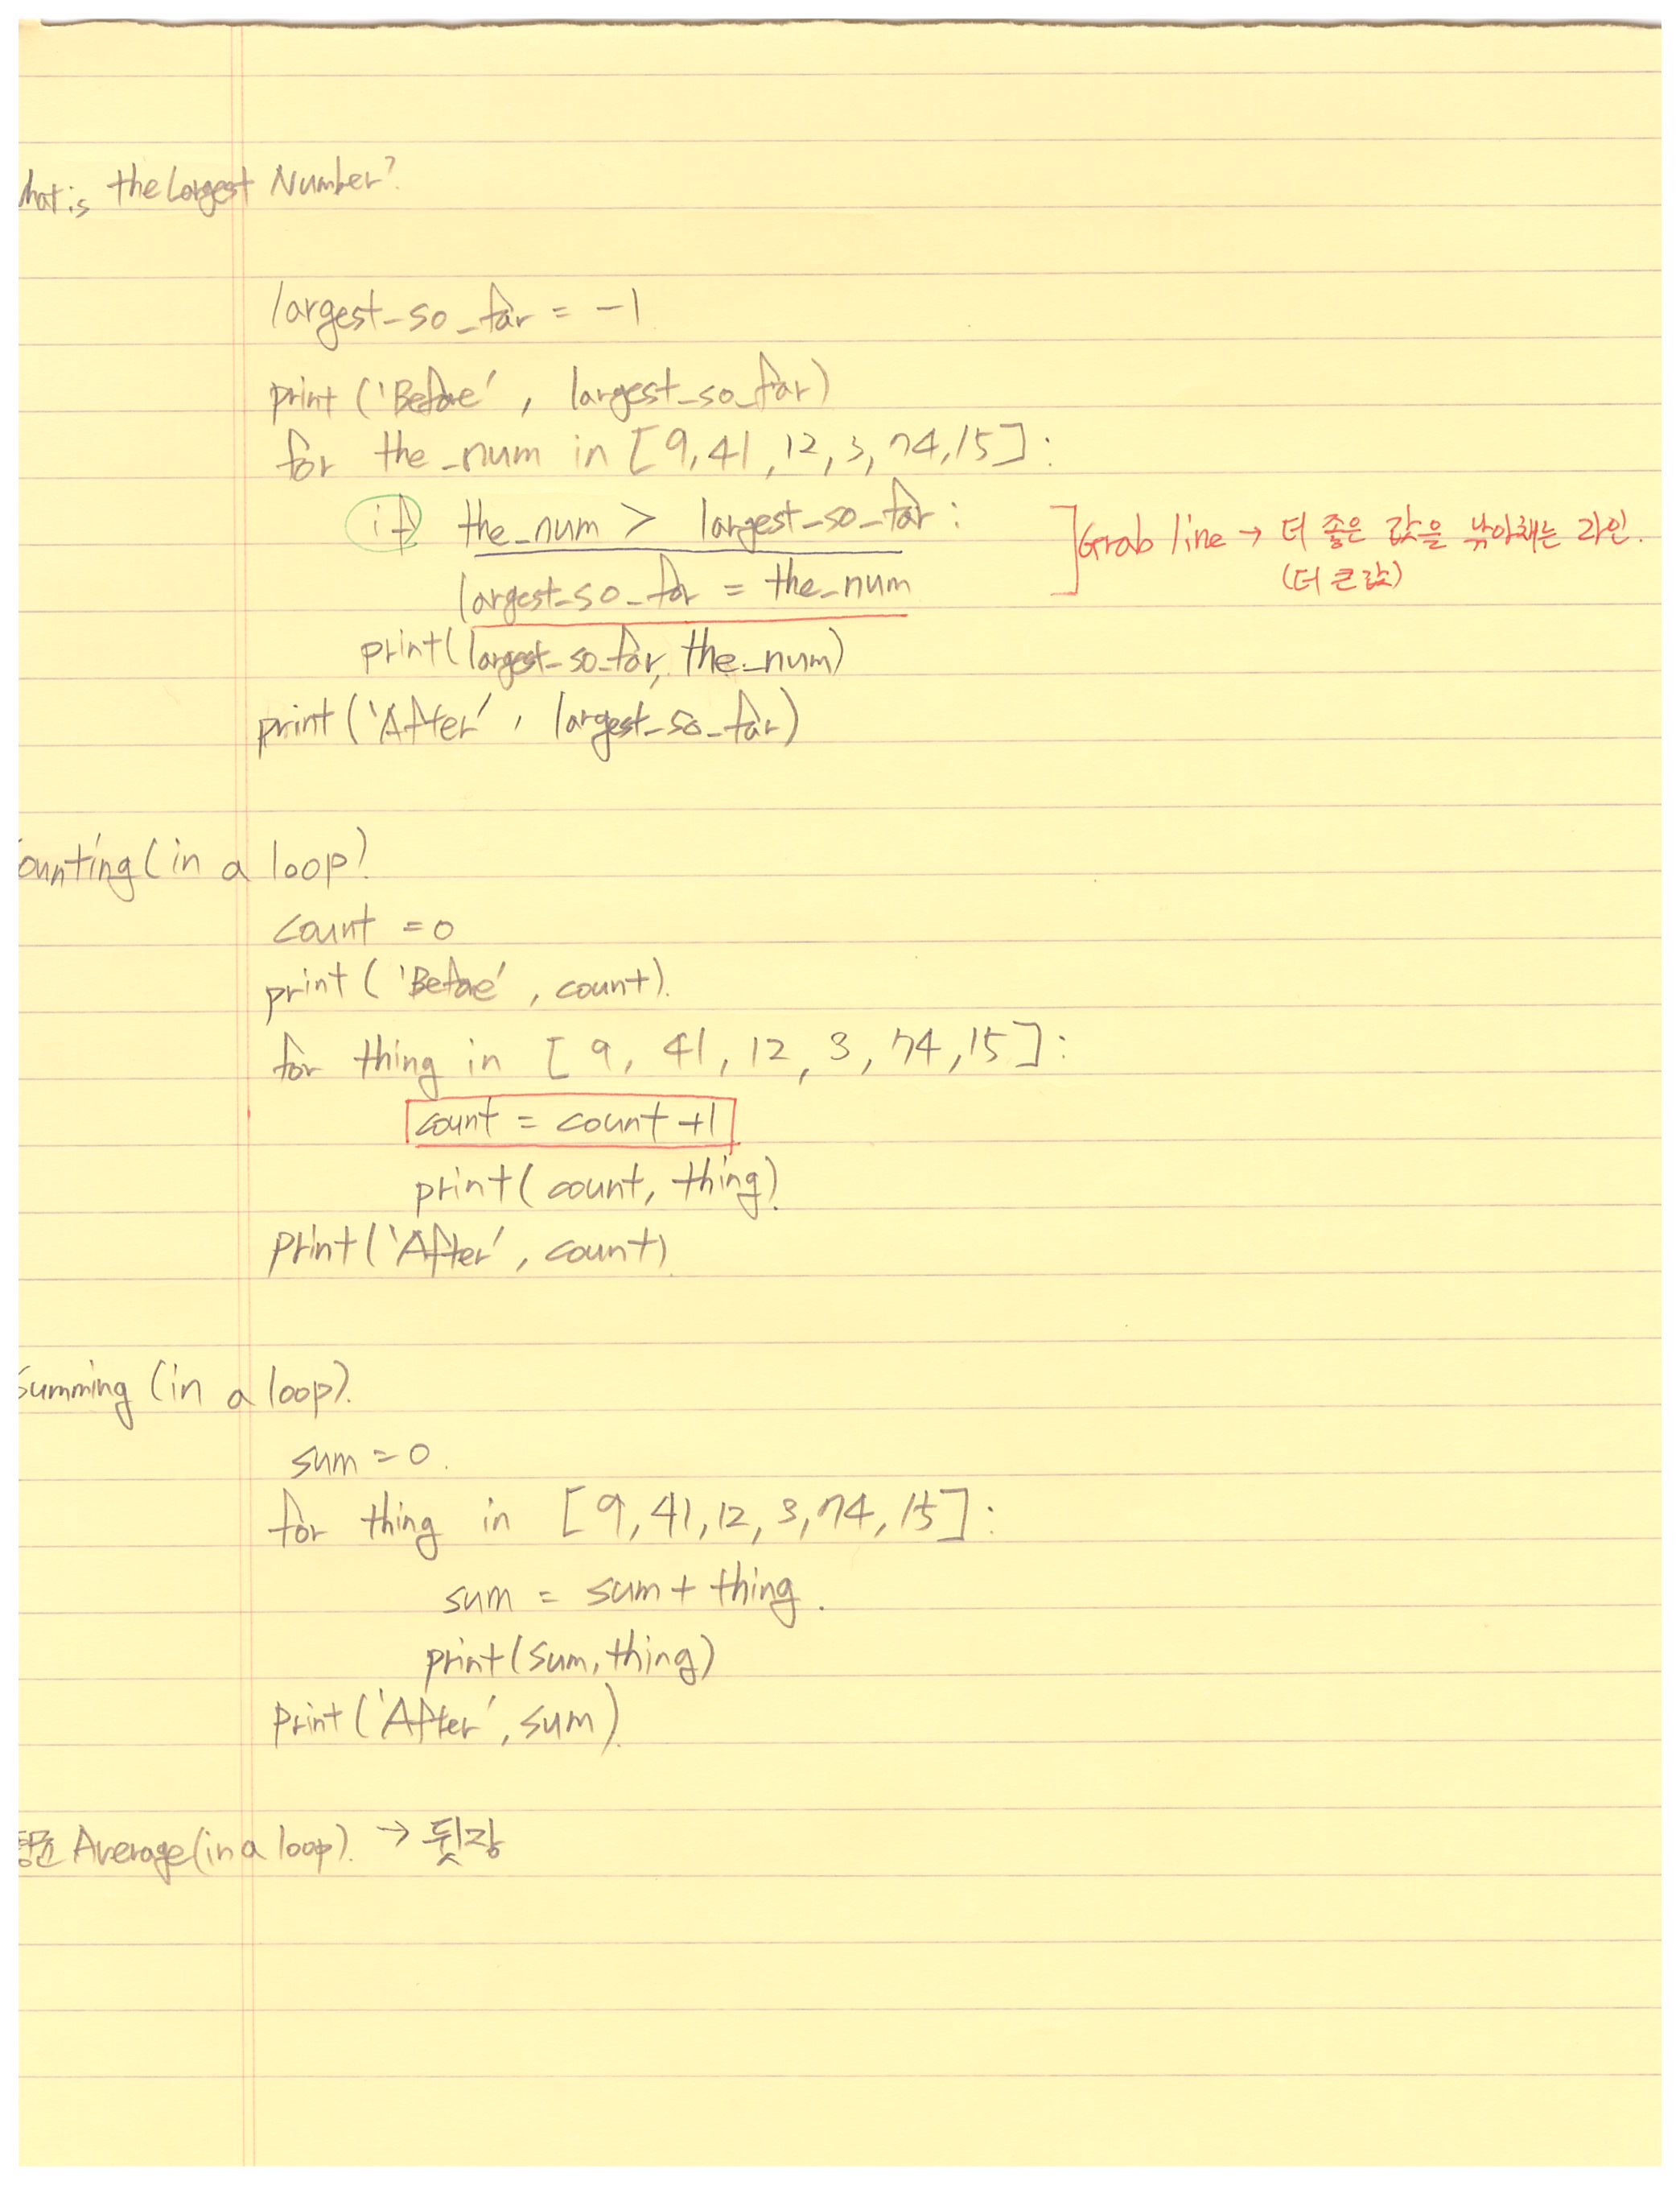 hat is the Largest Number?
largest_so_far = -1
print ('Before' , largest_so_far)
for the_num in [9,41,12,3,74,15]:
if the_num > largest_so_far:
Grab line → 더 좋은 값을 낚아채는 라인.
(더 큰 값)
largest_so_far = the_num
print(largest_so_far, the_num)
print ('After' , largest_so_far)
ounting (in a loop)
count = 0
print ( 'Before' , count).
for thing in [ 9, 41, 12, 3, 74, 15]:
count = count +1
print( count, thing)
Print('After' , count)
summing (in a loop).
sum = 0.
for thing in [9, 41, 12, 3, 74, 15]:
sum = sum + thing.
print(sum, thing)
Print ('After' , sum).
Average (in a loop). → 뒷장